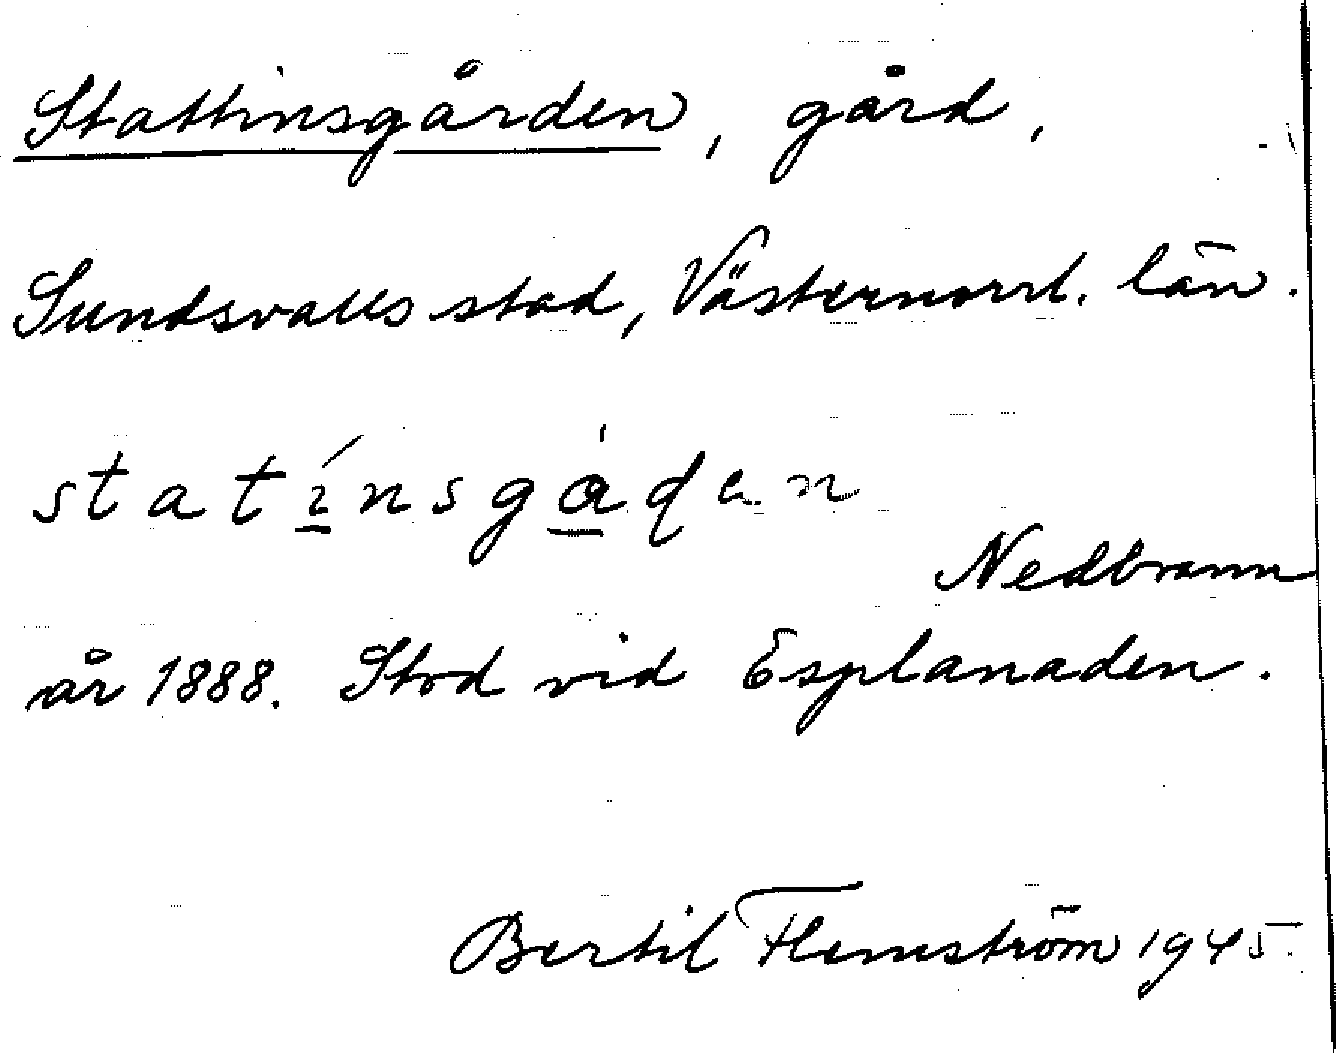 Stattinsgården, gård,
Sundsvalls stad, Västernorrl. län.
statínsgåden
Nedbrann
år 1888. Stod vid Esplanaden.
Bertil Flemström 1945.